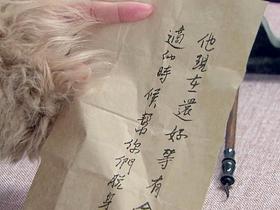 他現在還好等有合
適的時候幫你們脫身